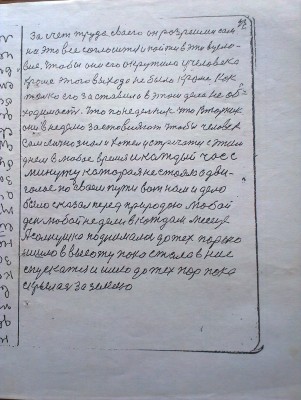 За счет труда своего он разрешил сам
на это все согласится и пойти в это усло-
вие. Чтобы оно его окрутило и человека
кроме этого выхода не было кроме как
только его заставило в этом деле необ-
ходимость. Что понедельник что вторник
они в неделю заставляют чтобы человек
сам лично знал и хотел встречаться с этим
днем в любое время и каждый час с
минутку которая не стояла а дви-
галась по своим пути вот нам и дело
было сказал перед природою любой
ден любой недели в каждам месяце
А солнушка поднималась до тех пор оно
ишло в высоту пока стала в низ
спускатся и ишло до тех пор пока
скрылась за землею